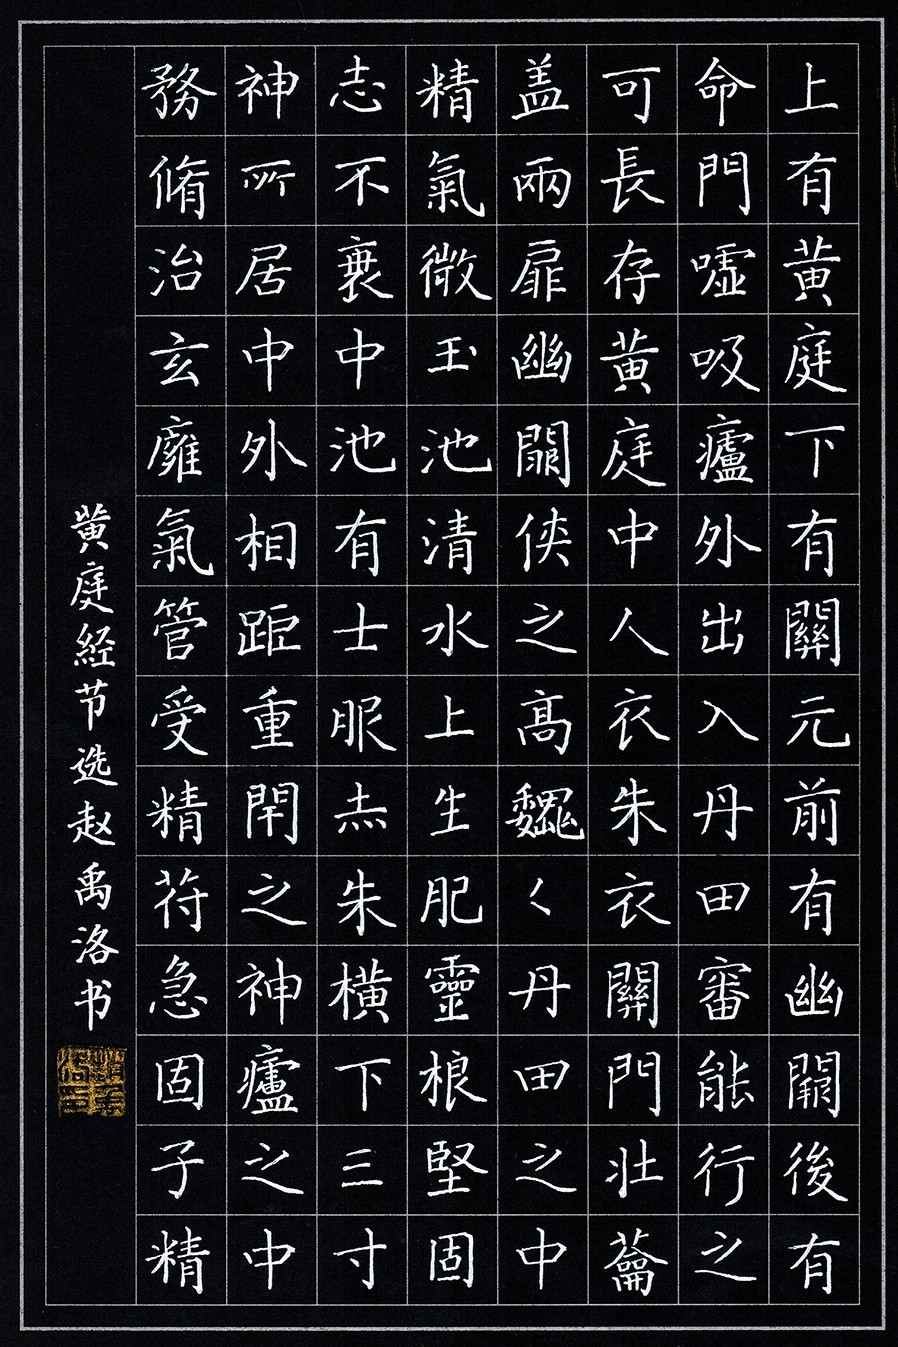 上有黄庭下有關元前有幽闕後有
命門噓吸廬外出入丹田審能行之
可長存黄庭中人衣朱衣關門壮蘥
盖兩扉幽闕俠之高魏〻丹田之中
精氣微玉池清水上生肥靈根堅固
志不衰中池有士服赤朱橫下三寸
神所居中外相距重閇之神廬之中
務脩治玄廱氣管受精苻急固子精
黄庭经节选赵禹洛书